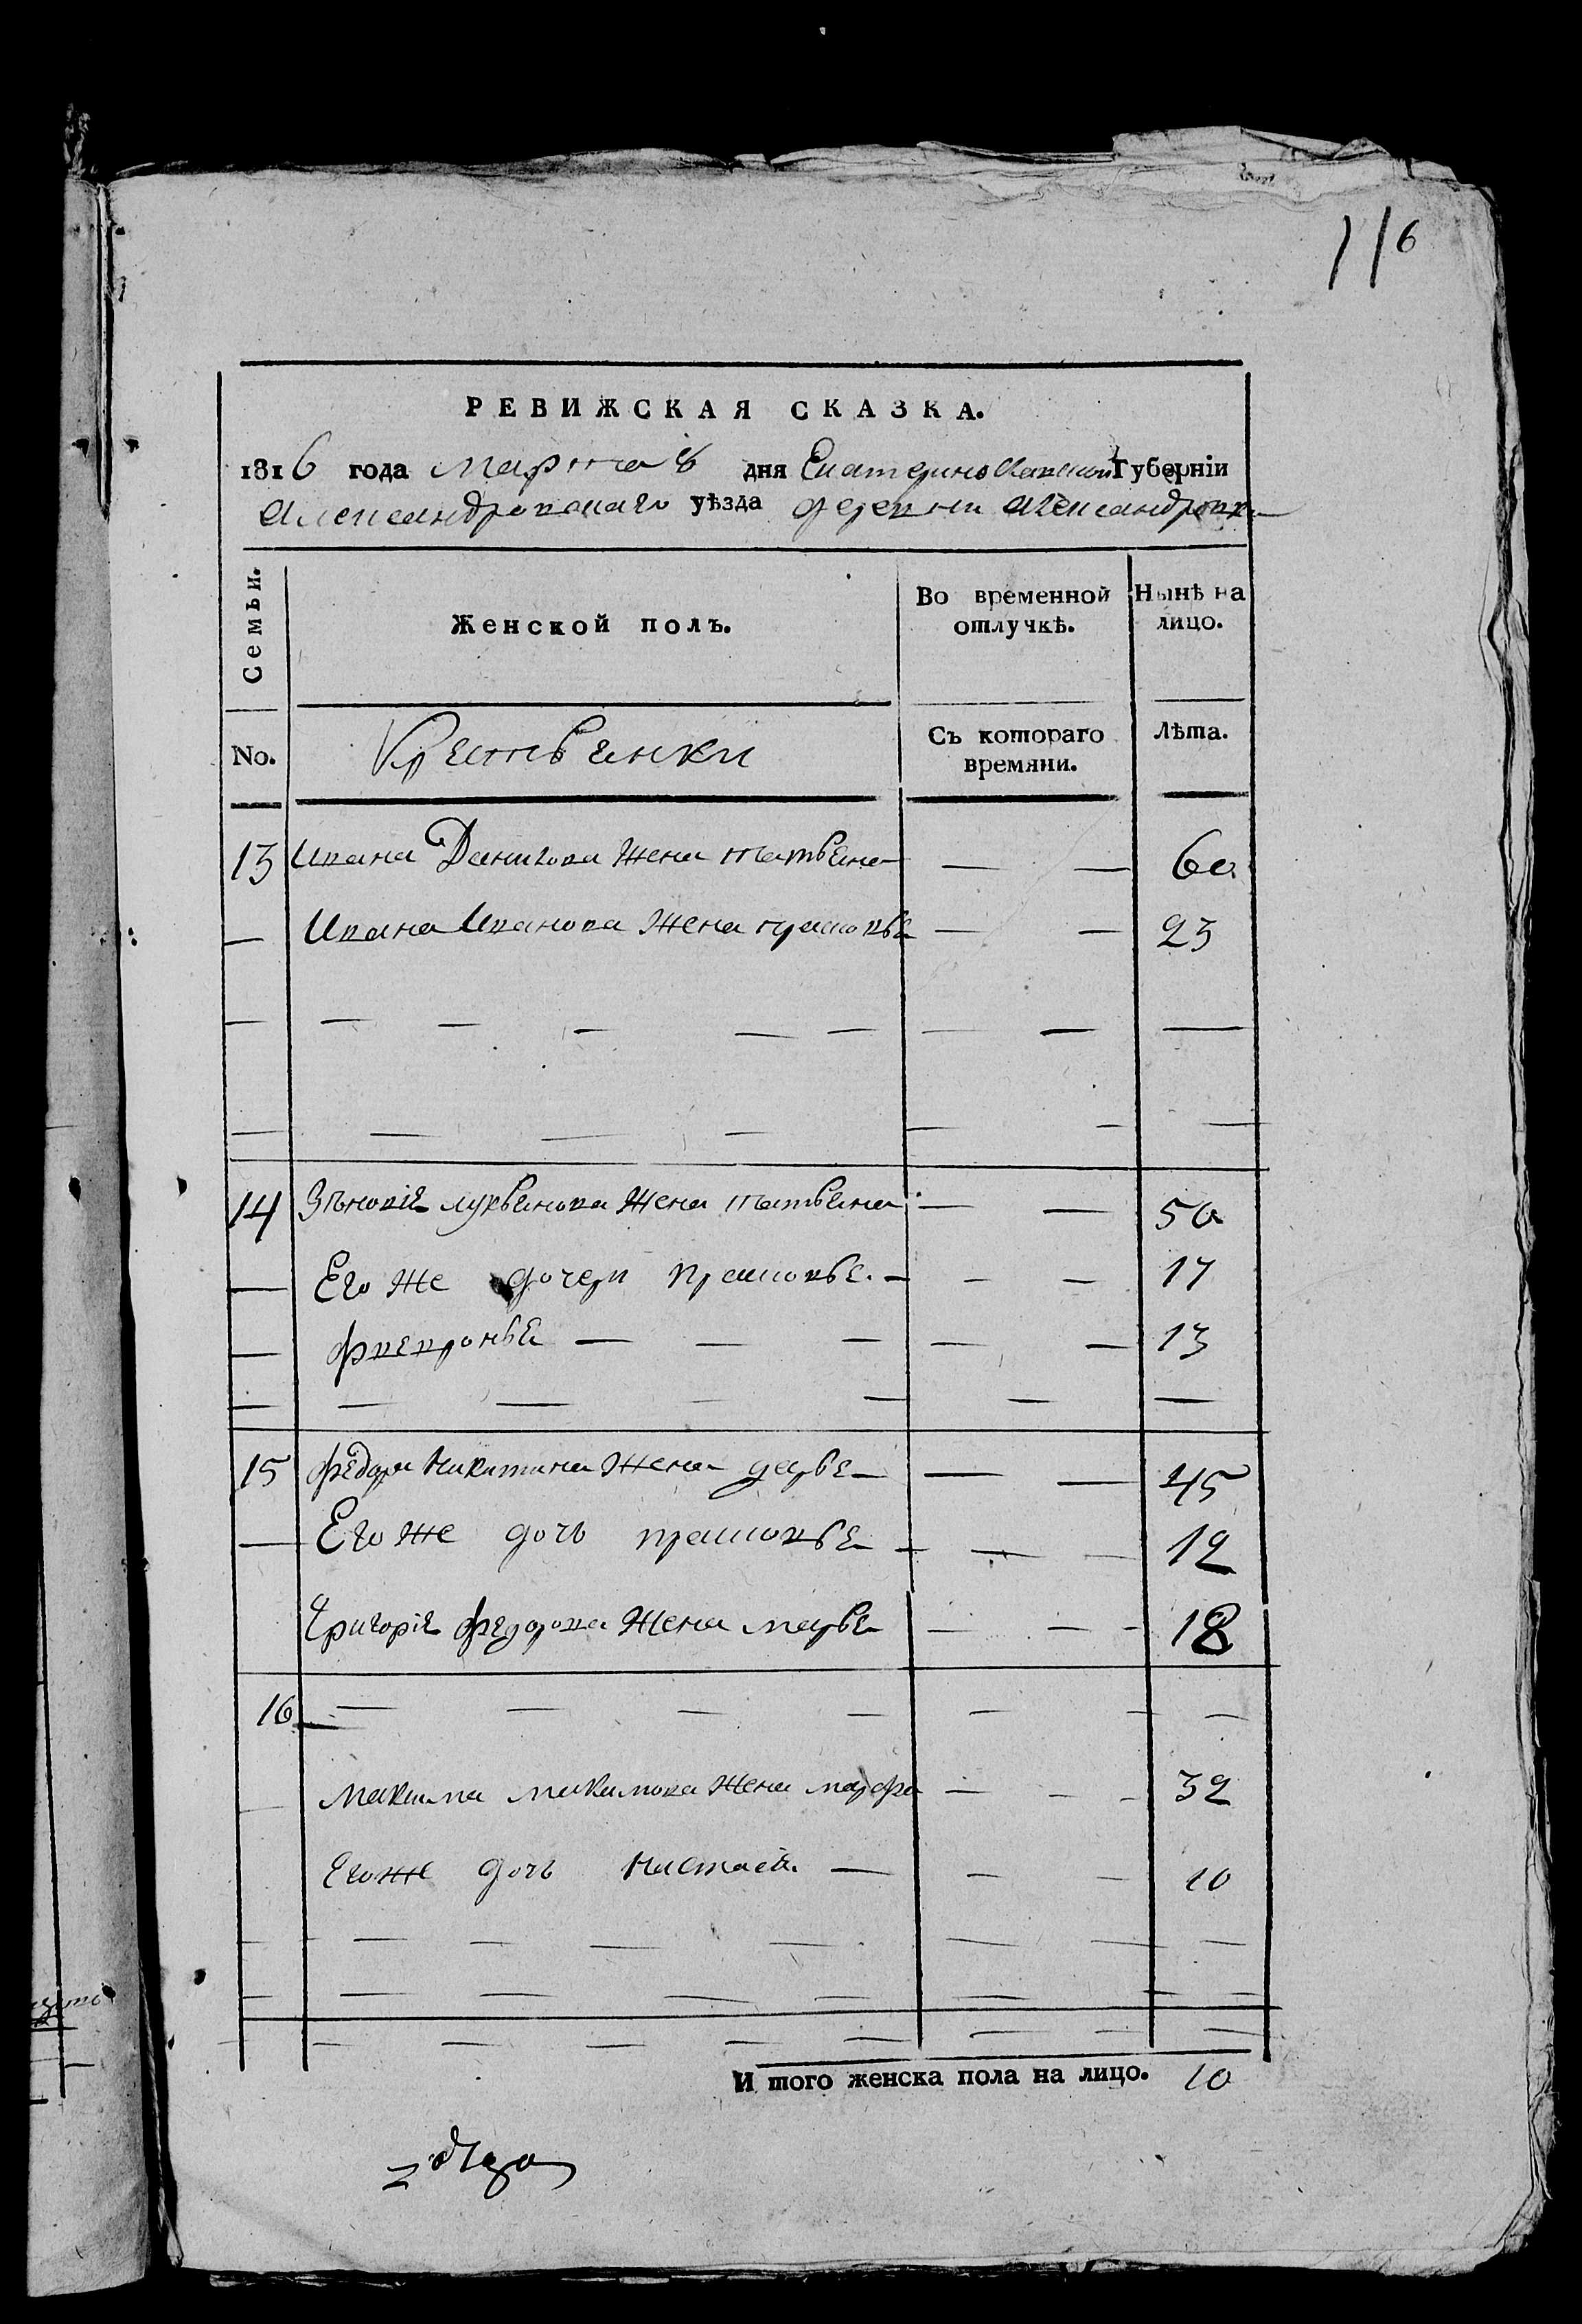 116
РЕВИЖСКАЯ СКАЗКА.
1816 года марта 8 дня Екатеринославской Губерніи
Александровскаго уѣзда деревни Александровки
Семьи.
Женской полъ.
Во временной отлучкѣ.
Нынѣ на лицо.
No.
Крестьянки
Съ котораго времяни.
Лѣта.
13 Ивана Данилова жена татьяна — — 60
— Ивана Иванова жена прасковья — — 23
14 Зѣновія лукьянова жена татьяна — — 50
— Его же дочери прасковья — — — 17
— февронья — — — — — 13
15 федора никитина жена дарья — — 45
— Его же дочь прасковья — — — 12
Григорія федорова жена марья — — 18
16 — — — — — — —
— макима макимова жена марфа — — 32
Егоже дочь настасія — — — 10
И того женска пола на лицо. 10